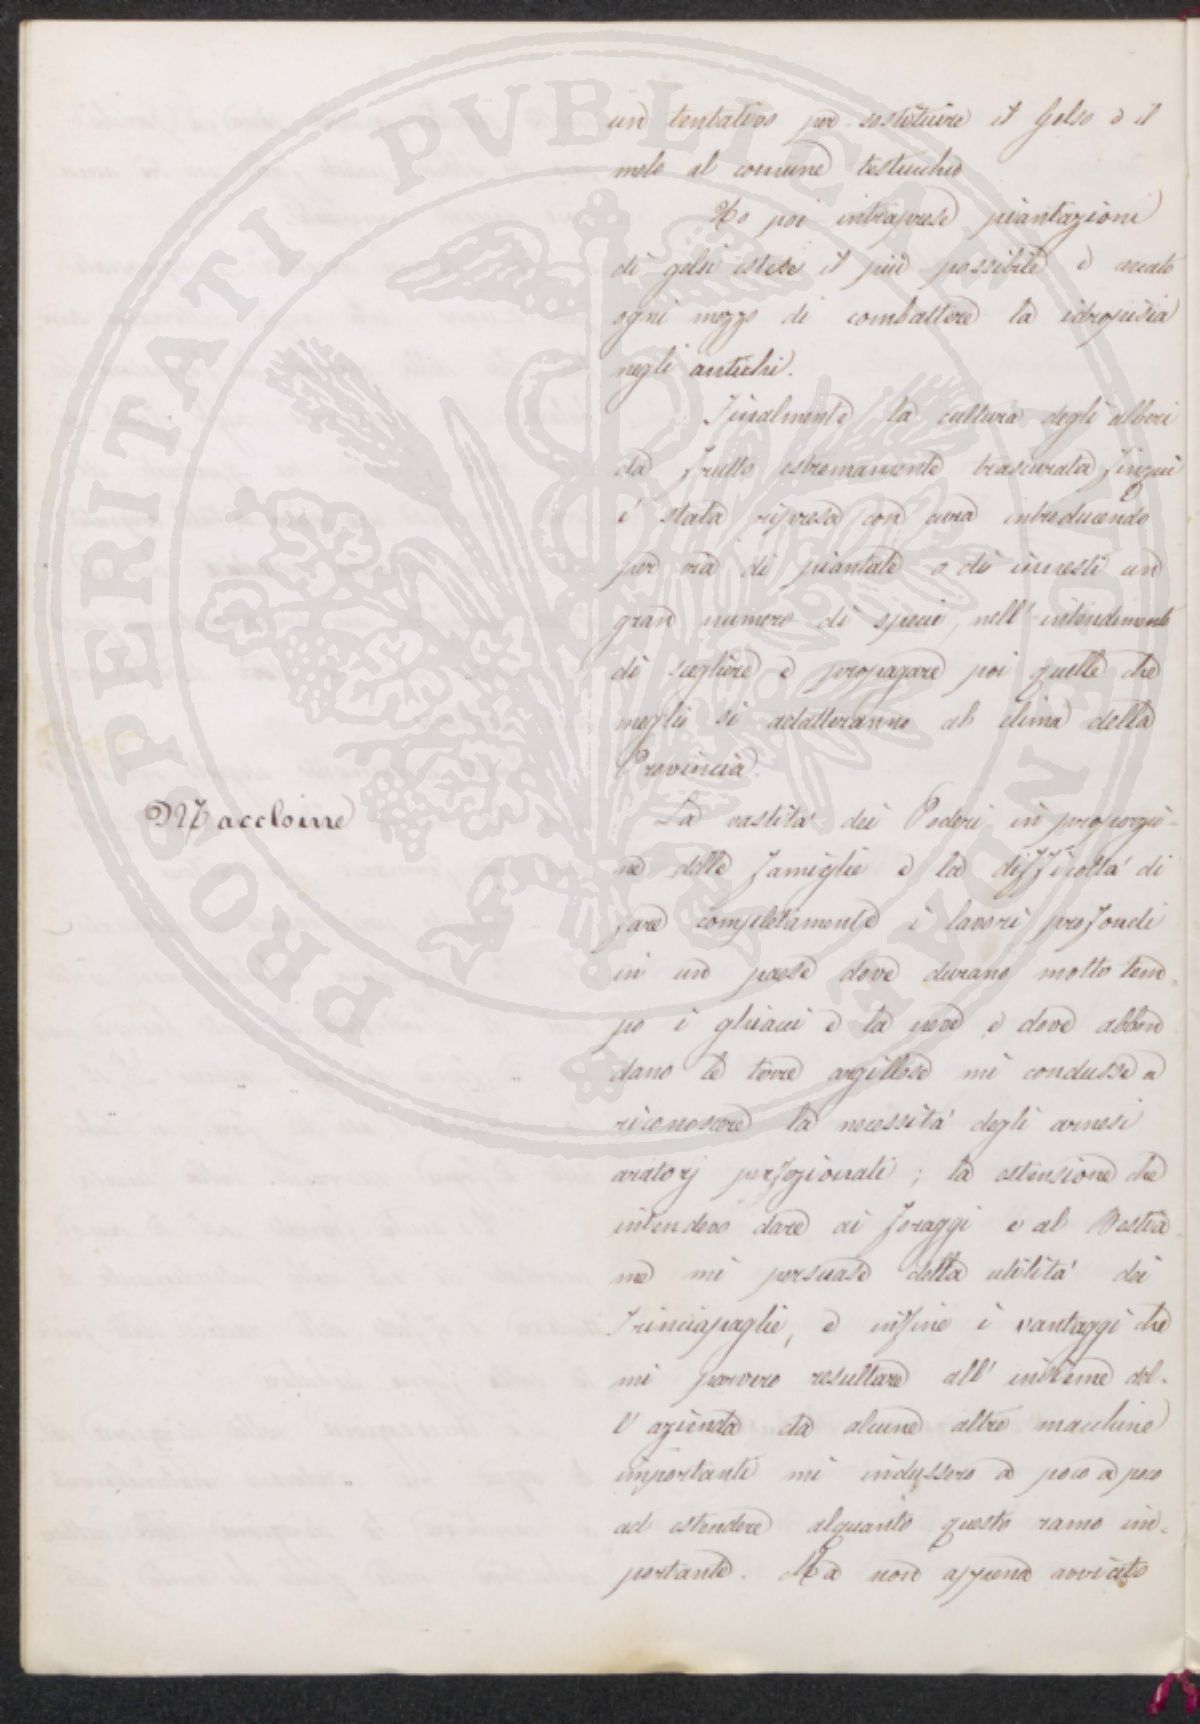 un tentativo per sostituire il Gelso e il
melo al comune testucchio
Ho poi intraprese piantazioni
di gelsi estese il più possibile e cercato
ogni mezzo di combattere la idropisia
negli antichi.
Finalmente la cultura degli alberi
da frutto estremamente trascurata finqui
è stata ripresa con cura introducendo
per via di piantate o di innesti un
gran numero di specie, nell'intendimento
di scegliere e propagare poi quelle che
meglio si adatteranno al clima della
Provincia.
Macchine
La vastità dei Poderi in proporzio-
ne delle famiglie e la difficoltà di
fare completamente i lavori profondi
in un paese dove durano molto tem-
po i ghiacci e la neve e dove abbon
dano le terre argillose mi condusse a
riconoscere la necessità degli arnesi
aratorj perfezionati; la estensione che
intendevo dare ai foraggi e al Bestia-
me mi persuase della utilità dei
Trinciapaglie, e infine i vantaggi che
mi parvero resultare all'insieme del-
l'azienda da alcune altre macchine
importanti mi indussero a poco a poco
ad estendere alquanto questo ramo im-
portante. Ma non appena avviato
PROSPERITATI PVBLICAE AVGENDAE